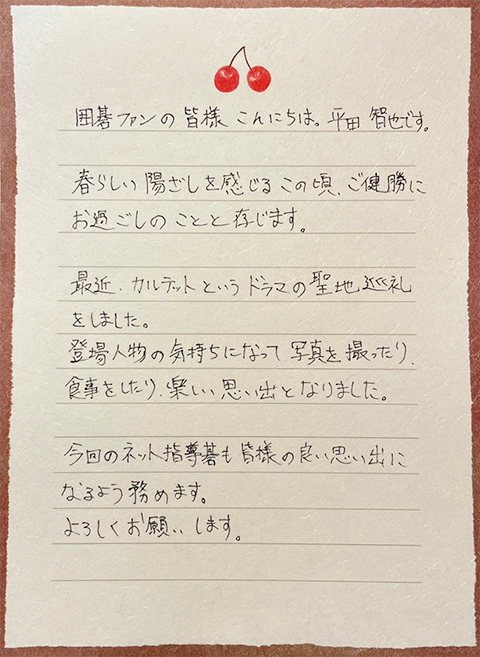 囲碁ファンの皆様 こんにちは。平田 智也です。
春らしい陽ざしを感じるこの頃、ご健勝に
お過ごしのことと存じます。
最近、カルテットというドラマの聖地巡礼
をしました。
登場人物の気持ちになって写真を撮ったり、
食事をしたり、楽しい思い出となりました。
今回のネット指導碁も皆様の良い思い出に
なるよう務めます。
よろしくお願いします。